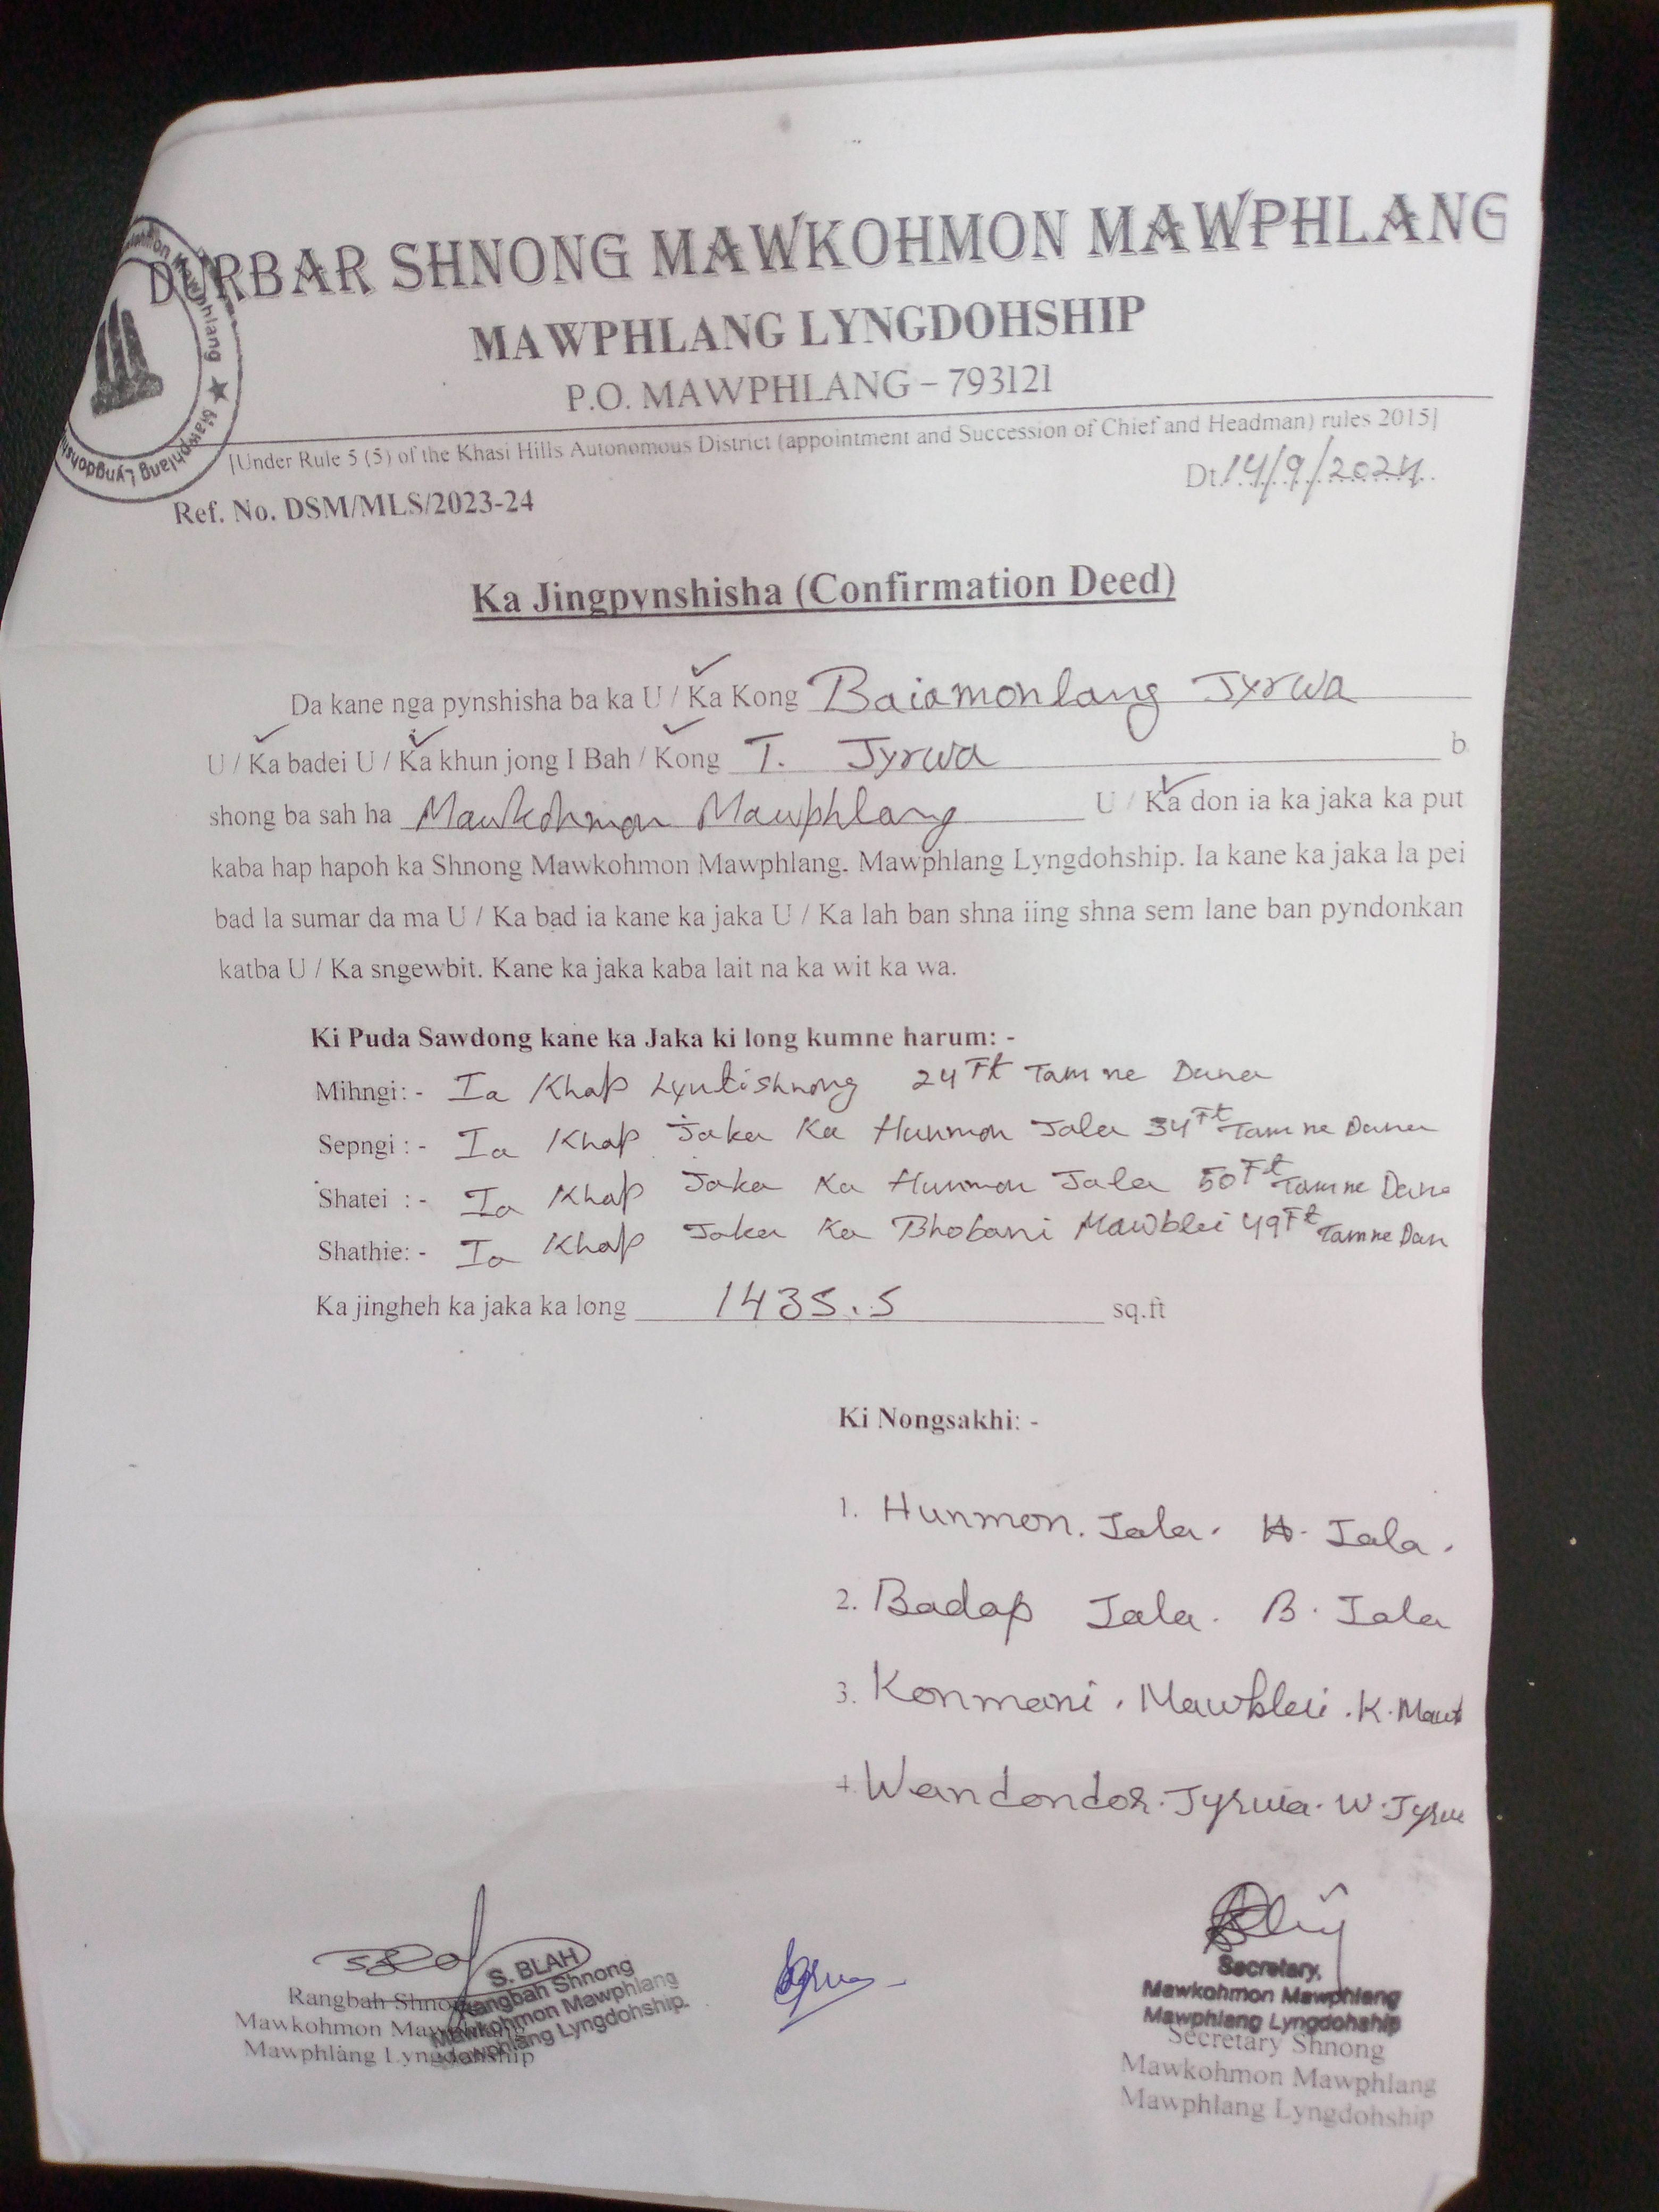 DURBAR SHNONG MAWKOHMON MAWPHLANG
MAWPHLANG LYNGDOHSHIP
P.O. MAWPHLANG – 793121
[Under Rule 5 (5) of the Khasi Hills Autonomous District (appointment and Succession of Chief and Headman) rules 2015]
Dt.14/9/2024
Ref. No. DSM/MLS/2023-24
Ka Jingpynshisha (Confirmation Deed)
Da kane nga pynshisha ba ka U / Ka Kong Baiamonlang Jyrwa
U / Ka badei U / Ka khun jong I Bah / Kong T. Jyrwa b
shong ba sah ha Mawkohmon Mawphlang U / Ka don ia ka jaka ka put
kaba hap hapoh ka Shnong Mawkohmon Mawphlang. Mawphlang Lyngdohship. Ia kane ka jaka la pei
bad la sumar da ma U / Ka bad ia kane ka jaka U / Ka lah ban shna iing shna sem lane ban pyndonkan
katba U / Ka sngewbit. Kane ka jaka kaba lait na ka wit ka wa.
Ki Puda Sawdong kane ka Jaka ki long kumne harum: -
Mihngi: - Ia Khap Lyntishnong 24 Ft Tam ne Duna
Sepngi : - Ia Khap Jaka Ka Hunmon Jala 34 Ft Tam ne Duna
Shatei : - Ia Khap Jaka Ka Hunmon Jala 50 Ft Tam ne Duna
Shathie: - Ia Khap Jaka Ka Bhobani Mawblei 49 Ft Tam ne Dun
Ka jingheh ka jaka ka long 1435.5 sq.ft
Ki Nongsakhi: -
1. Hunmon. Jala. H. Jala.
2. Badap Jala. B. Jala
3. Konmani. Mawblei. K. Maw
4. Wandondor. Jyrwa. W. Jyrw
S. BLAH
Rangbah Shnong
Mawkohmon Mawphlang
Mawphlang Lyngdohship.
Rangbah Shnong
Mawkohmon Mawphlang
Mawphlang Lyngdohship
Secretary,
Mawkohmon Mawphlang
Mawphlang Lyngdohship
Secretary Shnong
Mawkohmon Mawphlang
Mawphlang Lyngdohship